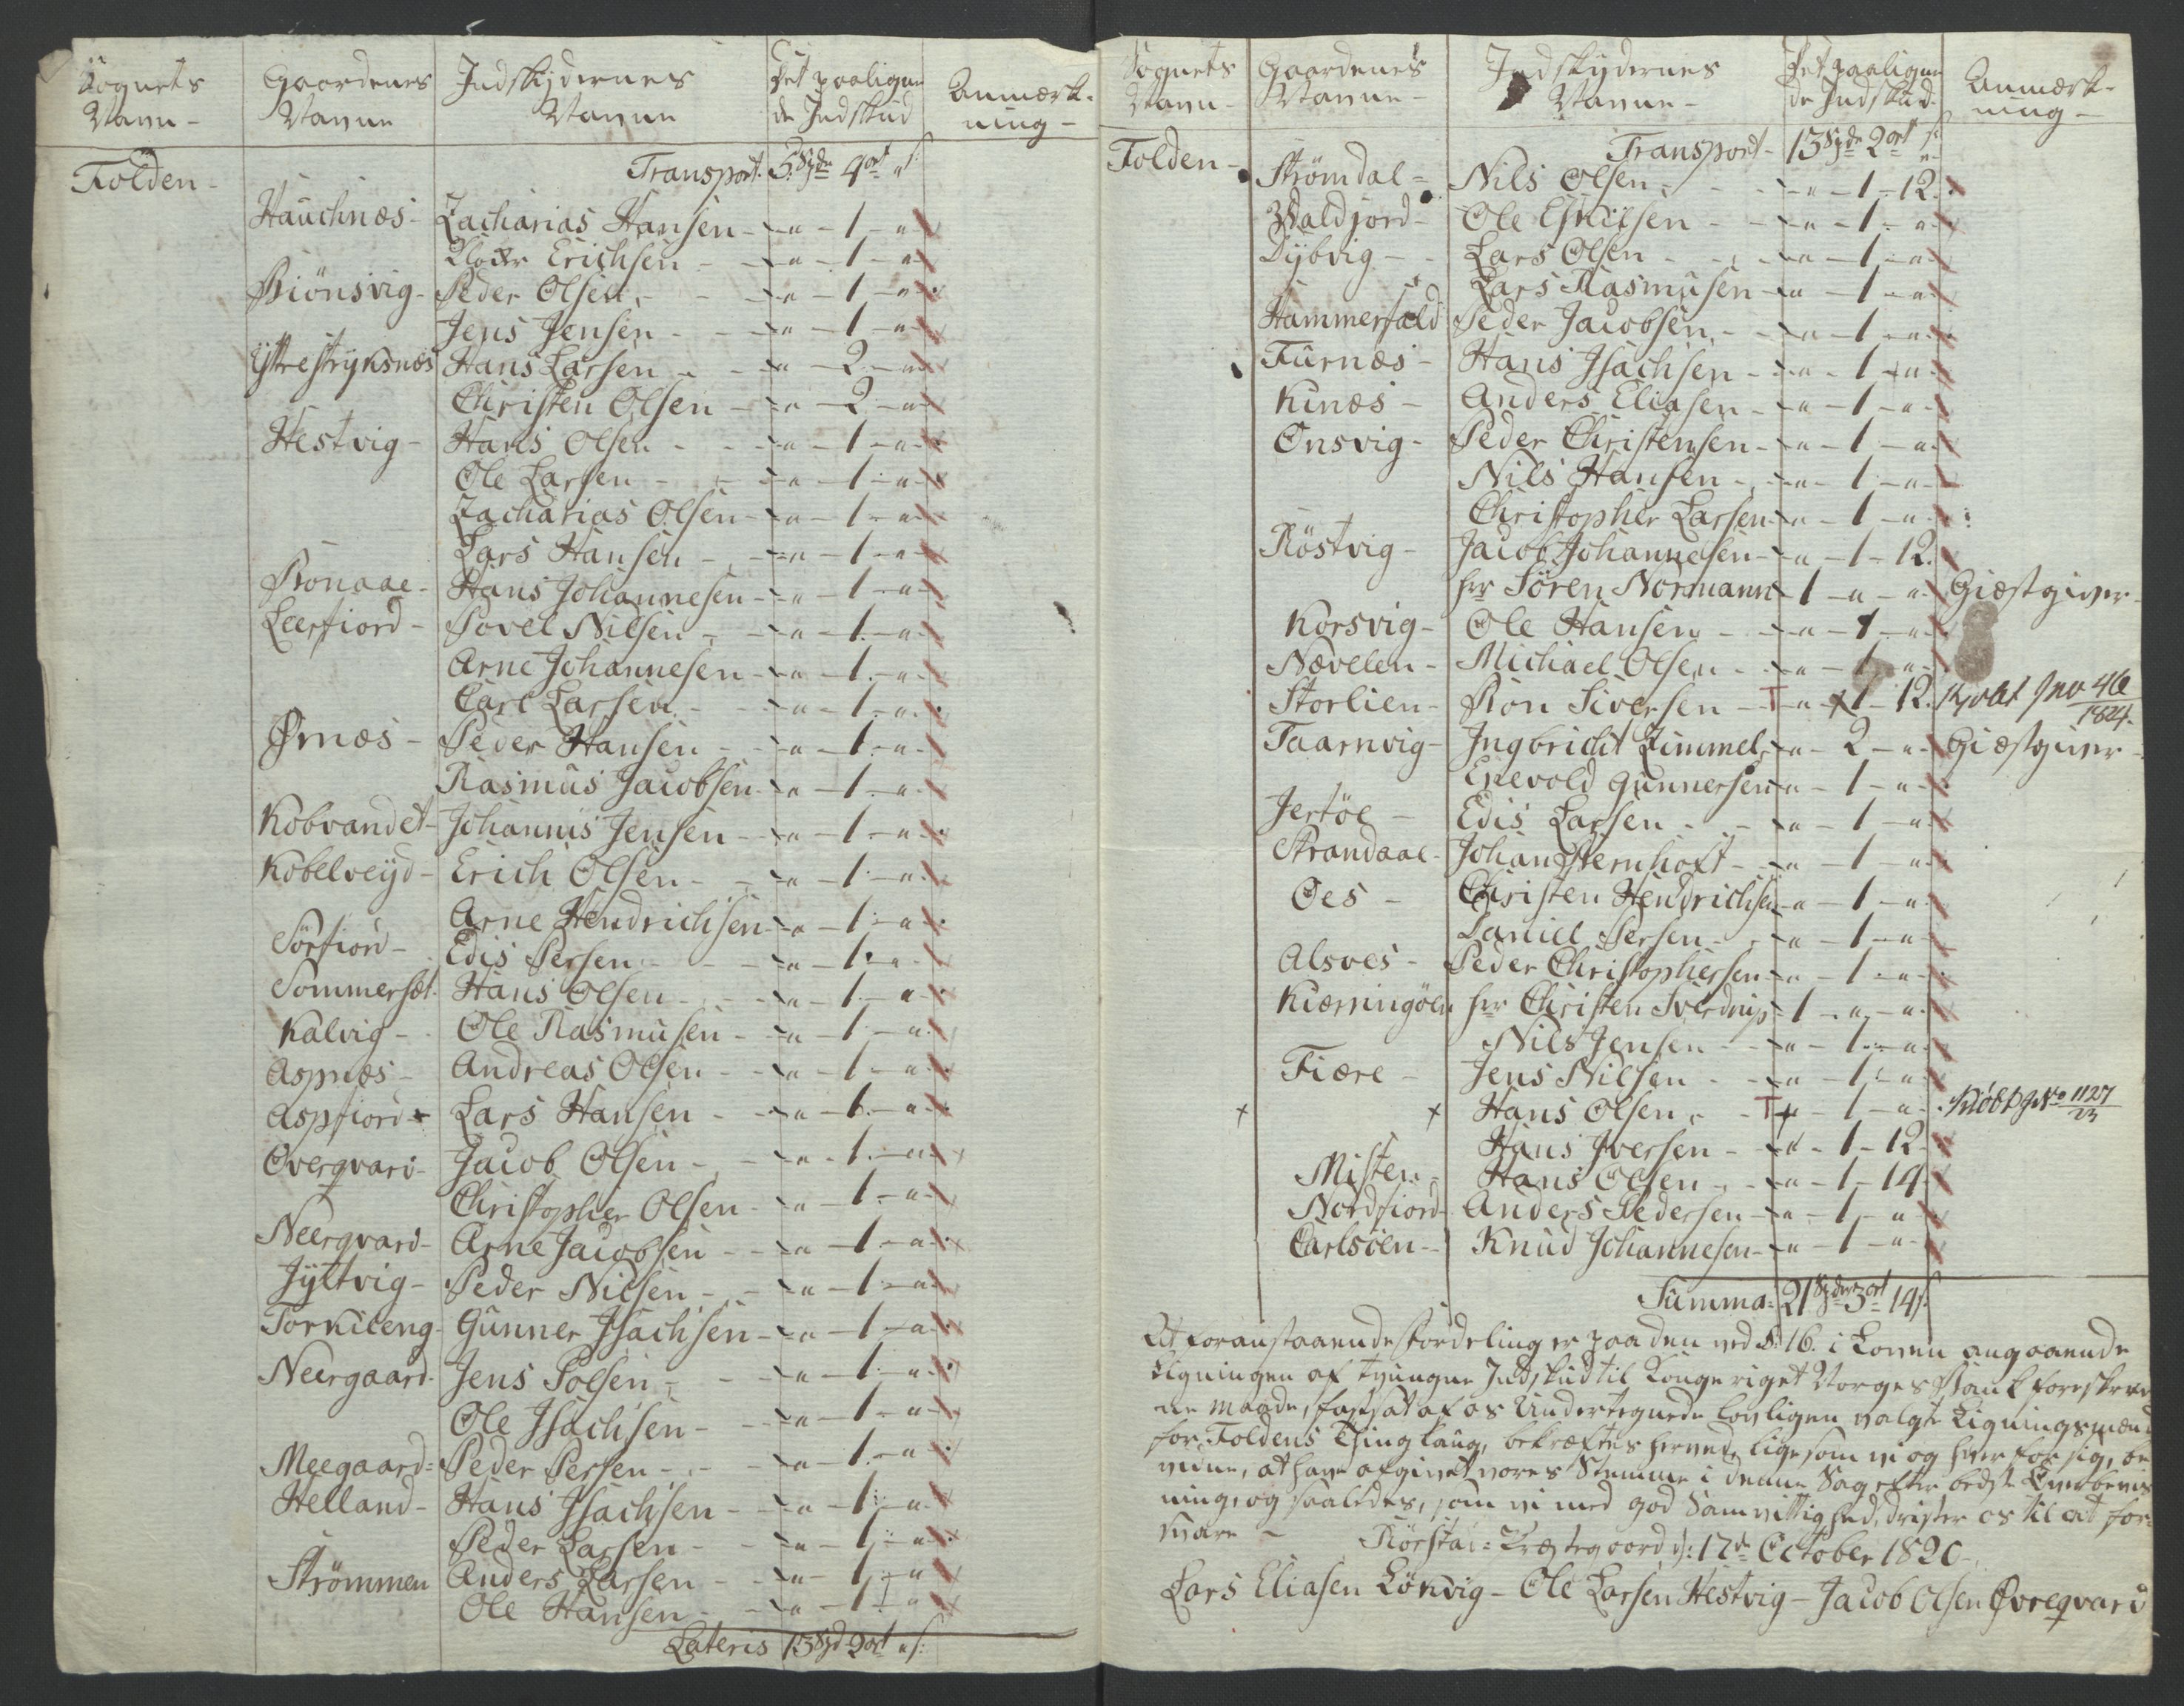 Sognets Navn - Gaardenes Navne Indskydernes Navne Det paalignede Indskud Anmærkning -
Folden - Transport. 5 Spd 4 ort " s:
Hauchnæs - Zacharias Hansen - " - 1 - "
Erichsen - " - 1 - "
Biönsvig - Peder Olsen - " - 1 - "
Jens Jensen - " - 1 - "
Ytrestryksnæs Hans Larsen - " - 2 - "
Christen Olsen - " - 2 - "
Hestvig - Hans Olsen - " - 1 - "
Ole Larsen - " - 1 - "
Zacharias Olsen - " - 1 - "
Lars Hansen - " - 1 - "
Bonaae - Hans Johannesen - " - 1 - "
Leerfiord - Povel Nilsen - " - 1 - "
Arne Johannesen - " - 1 - "
Carl Larsen - " - 1 - "
Ørnæs - Peder Hansen - " - 1 - "
Rasmus Jacobsen - " - 1 - "
Kobvandet - Johannis Jensen - " - 1 - "
Kobelveyd - Erich Olsen - " - 1 - "
Arne Hendrichsen - " - 1 - "
Sörfiord - Edis Persen - " - 1 - "
Sommersæt - Hans Olsen - " - 1 - "
Kalvig - Ole Rasmusen - " - 1 - "
Aspnæs - Andreas Olsen - " - 1 - "
Aspfiord - Lars Hansen - " - 1 - "
Overqvarv - Jacob Olsen - " - 1 - "
Christopher Olsen - " - 1 - "
Neerqvarv - Arne Jacobsen - " - 1 - "
Jyltvig - Peder Nilsen - " - 1 - "
Torkileng - Gunner Isachsen - " - 1 - "
Neergaard - Jens Polsen - " - 1 - "
Ole Isachsen - " - 1 - "
Meegaard - Peder Persen - " - 1 - "
Helland - Hans Isachsen - " - 1 - "
Peder Larsen - " - 1 - "
Strömmen Anders Larsen - " - 1 - "
Ole Hansen - " - 1 - "
Lateris 13 Spd 2 ort " s:
Sognets Navn - Gaardenes Navne - Indskydernes Navne - Det paalignede Indskud Anmærkning -
Folden - Transport - 13 Spd 2 ort " s:
Strömdal - Nils Olsen - " - 1 - 12
Valdjord - Ole Eskilsen - " - 1 - "
Dybvig - Lars Olsen - " - 1 - "
Lars Rasmusen - " - 1 - "
Hammerfald Peder Jacobsen - " - 1 - "
Furnæs - Hans Isachsen - " - 1 - "
Kinæs - Anders Eliasen - " - 1 - "
Onsvig - Peder Christensen - " - 1 - "
Nils Hansen - " - 1 - "
Christopher Larsen - " - 1 - "
Röstvig - Jacob Johannesen - " - 1 - 12
hrr Sören Normann - 1 - " - " Giæstgiver -
Korsvig - Ole Hansen - " - 1 - "
Nævelen - Michael Olsen - " - 1 - "
Storlien - Bon Siversen - T " - 1 - 12. 46/1824
Taarnvig - Ingbricht Zimmel - " - 2 - " Giæstgiver -
Enevold Gunnersen - " - 1 - "
Jertöe - Edis Larsen - " - 1 - "
Strandaae - Johan Sternhoft - " - 1 - "
Oes - Christen Hendrichsen - " - 1 - "
Daniel Persen - " - 1 - "
Alsves - Peder Christophersen - " - 1 - "
Kiærringöen hrr Christen Sverdrup - 1 - " - "
Nils Jensen - " - 1 - "
Fiære - Jens Nilsen - " - 1 - "
x x Hans Olsen - T x - 1 - " No 1127/23
Hans Iversen - " - 1 - 12
Misten - Hans Olsen - " - 1 - 14
Nordfiord - Anders Pedersen - " - 1 - "
Carlsöen - Knud Johannesen - " - 1 - "
Summa: 21 Spdr 3 ort 14 s:
At foranstaaende Fordeling er paa den ved §: 16. i Loven angaaende
Ligningen af tvungne Indskud til Kongeriget Norges Bank foreskrev
ne Maade, fastsat af os Undertegnede lovligen valgte Ligningsmænd
for Foldens Thinglaug, bekræftes herved, ligesom vi og hver for sig, be
vidne, at have afgivet vores Stemme i denne Sag efter bedste Overbeviis
ning, og saaledes, som vi med god Samvittighed, drister os til at for-
svare -
Rörstad Præstegaard d: 17de October 1820 -
Lars Eliasen Lökvig - Ole Larsen Hestvig - Jacob Olsen Øvreqvarv